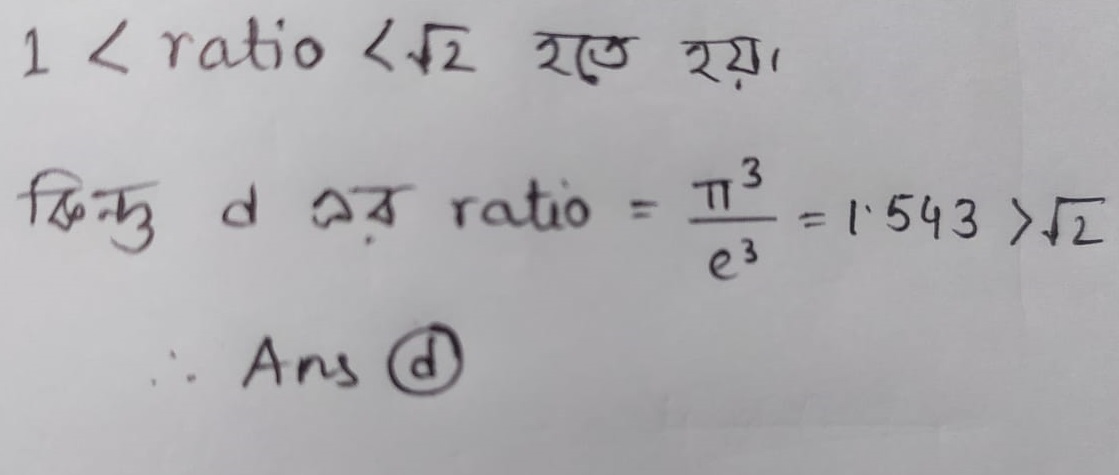 1 < ratio < √2 হতে হয়।
কিন্তু d এর ratio = π³/e³ = 1.543 > √2
∴ Ans ⓓ